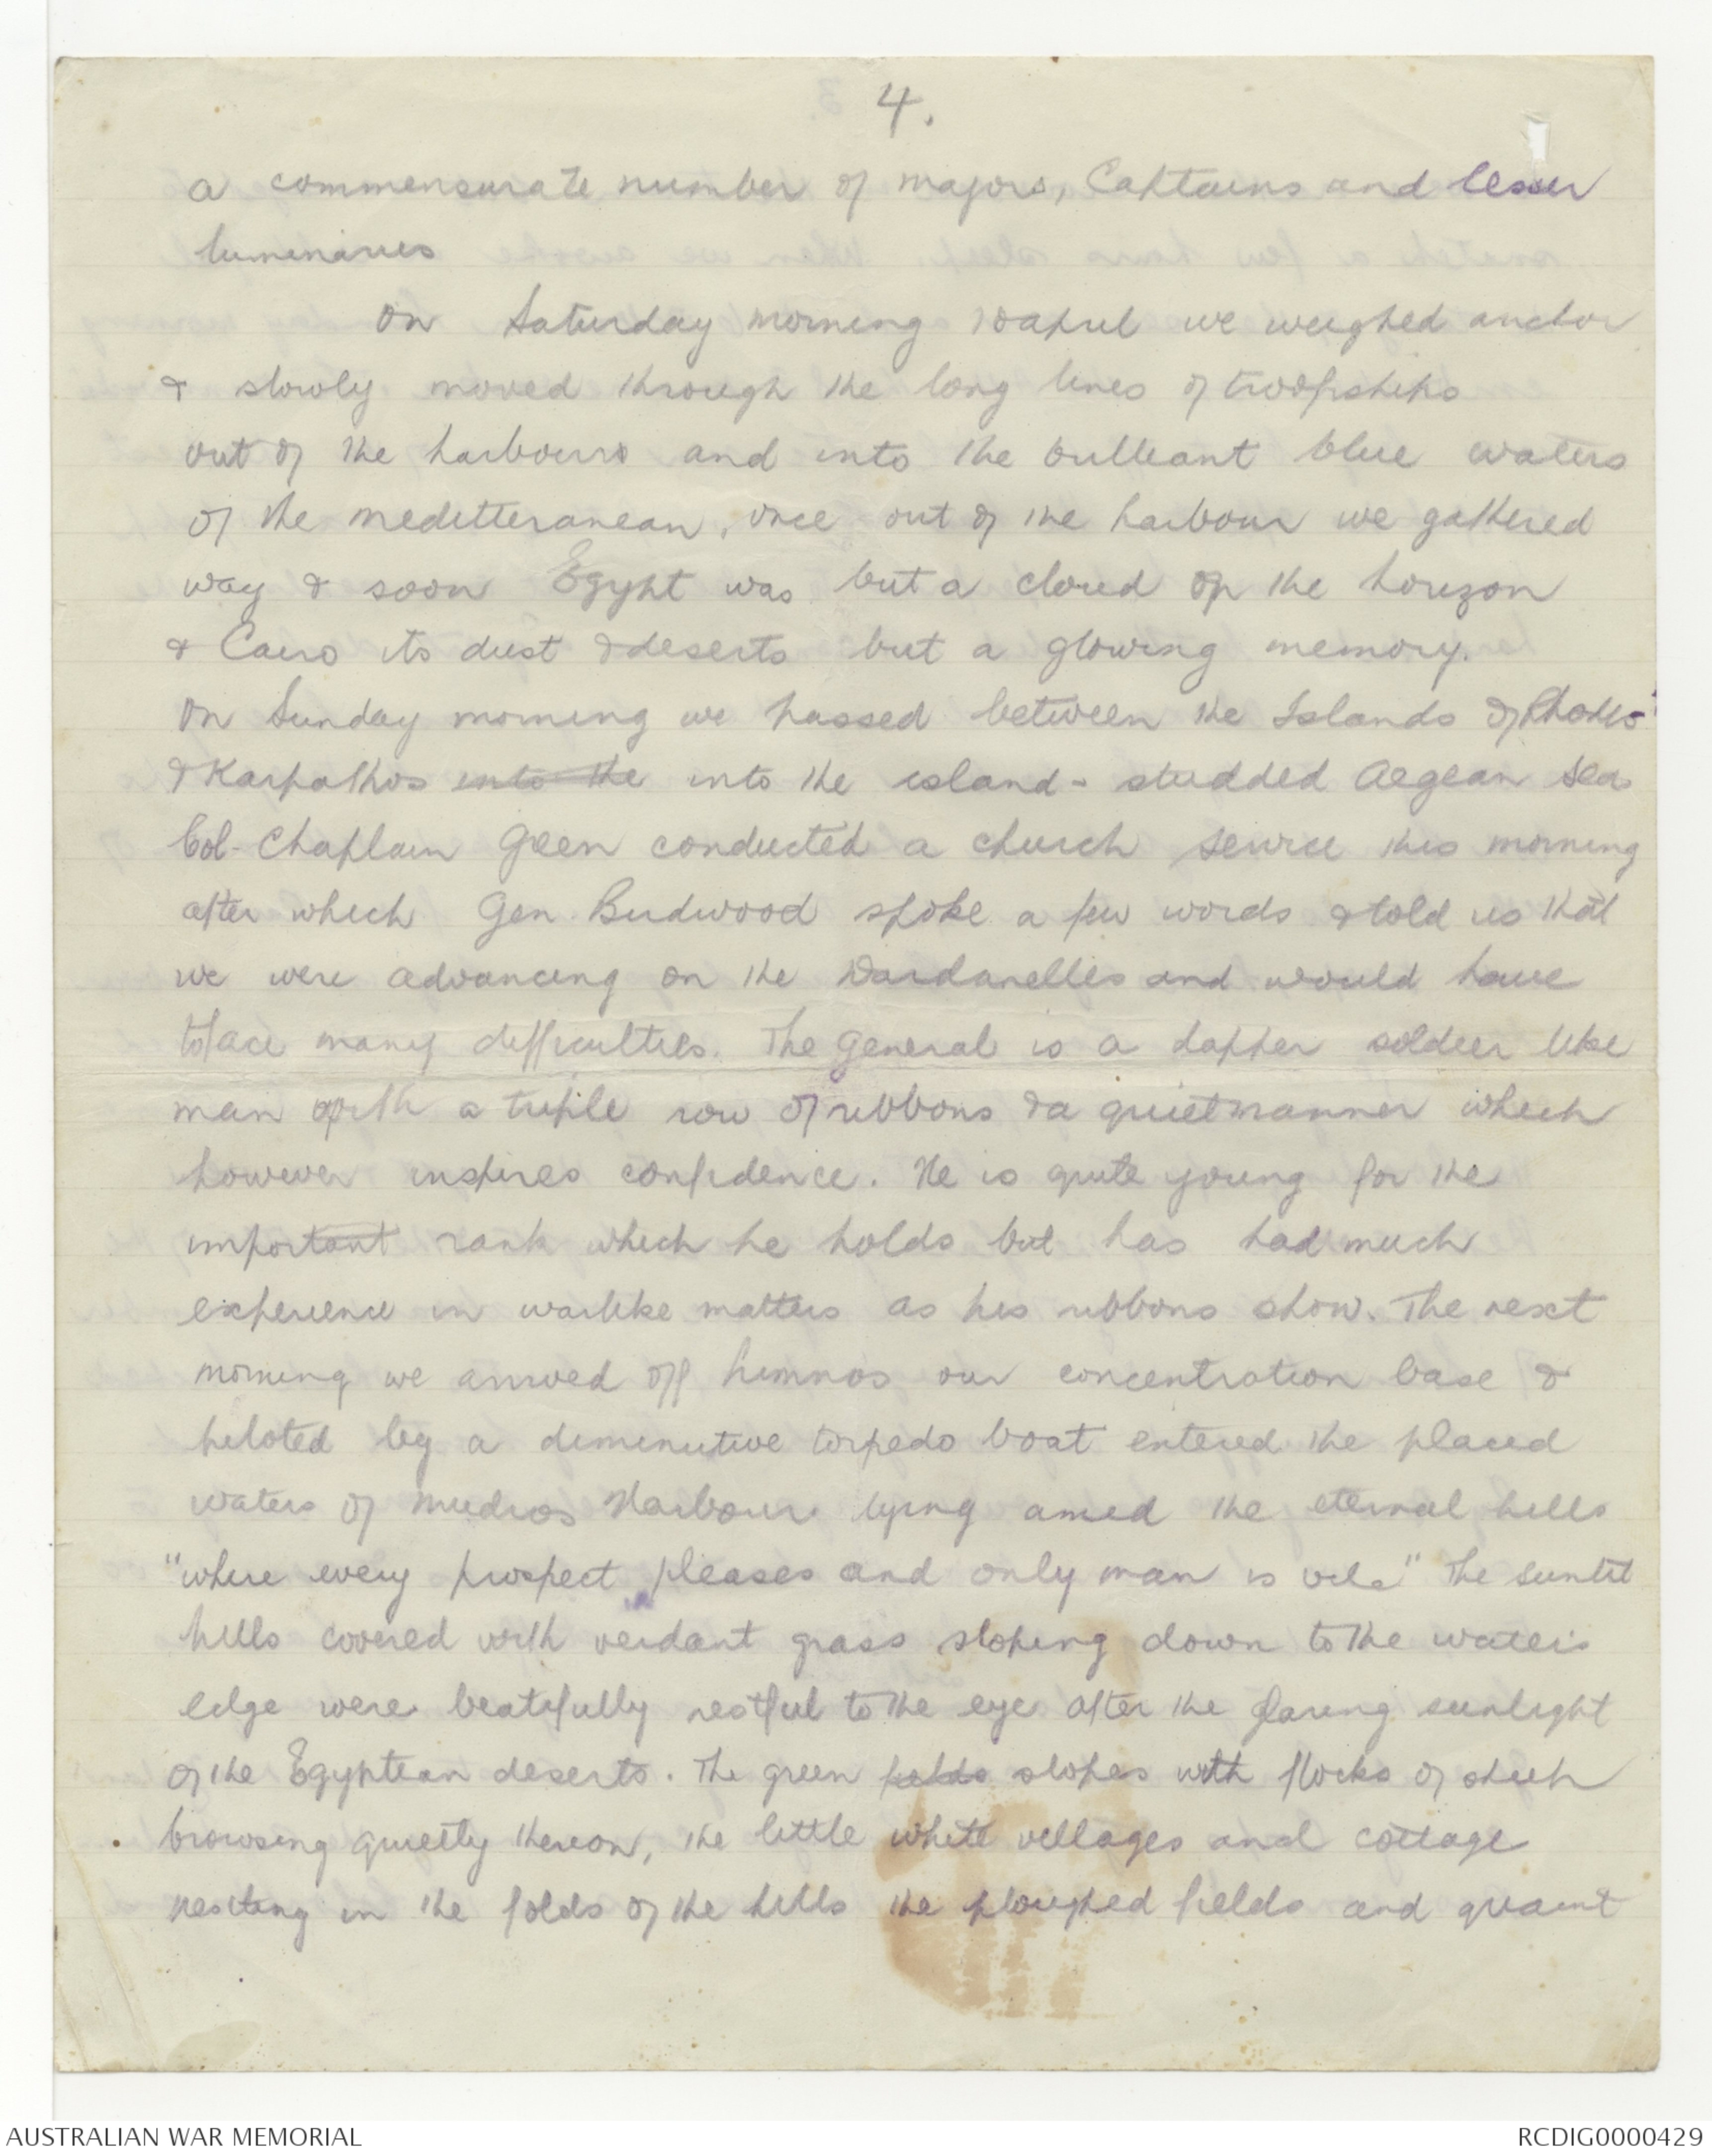 4.
a commensurate number of majors, Captains and lesser
luminaries
On Saturday morning 10 april we weighed anchor
& slowly moved through the long lines of troopships
out of the harbours and into the brilleant blue waters
of the mediterranean, once out of the harbour we gathered
way & soon Egypt was but a cloud on the horizon
& Cairo its dust & deserts but a glowing memory.
On Sunday morning we passed between the Islands of Rhodes
& Karpathos into the into the island-studded Aegean Sea
Col-Chaplain Green conducted a church service this morning
after which Gen Birdwood spoke a few words & told us that
we were advancing on the Dardanelles and would have
to face many difficulties. The General is a dapper soldier like
man with a triple row of ribbons & a quiet manner which
however inspires confidence. He is quite young for the
important rank which he holds but has had much
experience in warlike matters as his ribbons show. The next
morning we arrived off Limnos our concentration base &
piloted by a diminutive torpedo boat entered the placid
waters of Mudros Harbour lying amid the eternal hills
"where every prospect pleases and only man is vile" The sunlit
hills covered with verdant grass sloping down to the water's
edge were beatifully restful to the eye after the glaring sunlight
of the Egyptian deserts. The green fields slopes with flocks of sheep
browsing quietly thereon, the little white villages and cottage
nestling in the folds of the hills the ploughed fields and quaint
AUSTRALIAN WAR MEMORIAL
RCDIG0000429